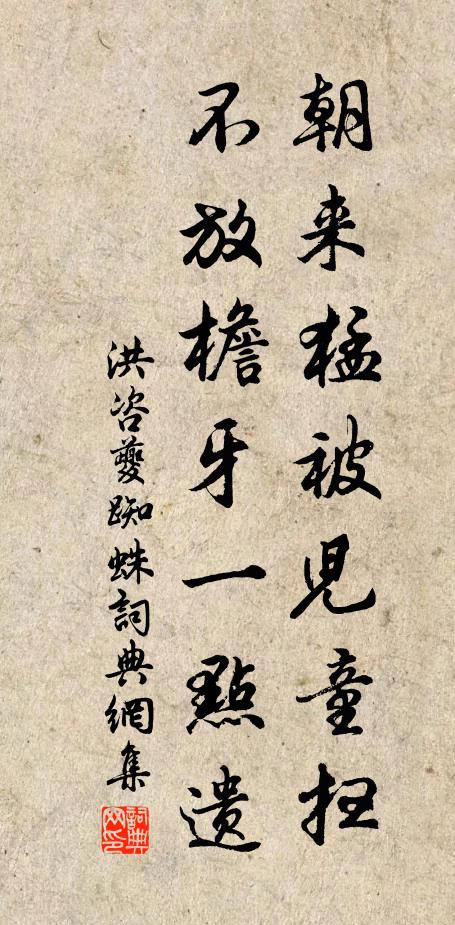 朝来猛被児童扫
不放檐牙一點遗
洪咨夔踟蛛詞典網集
詞典网印